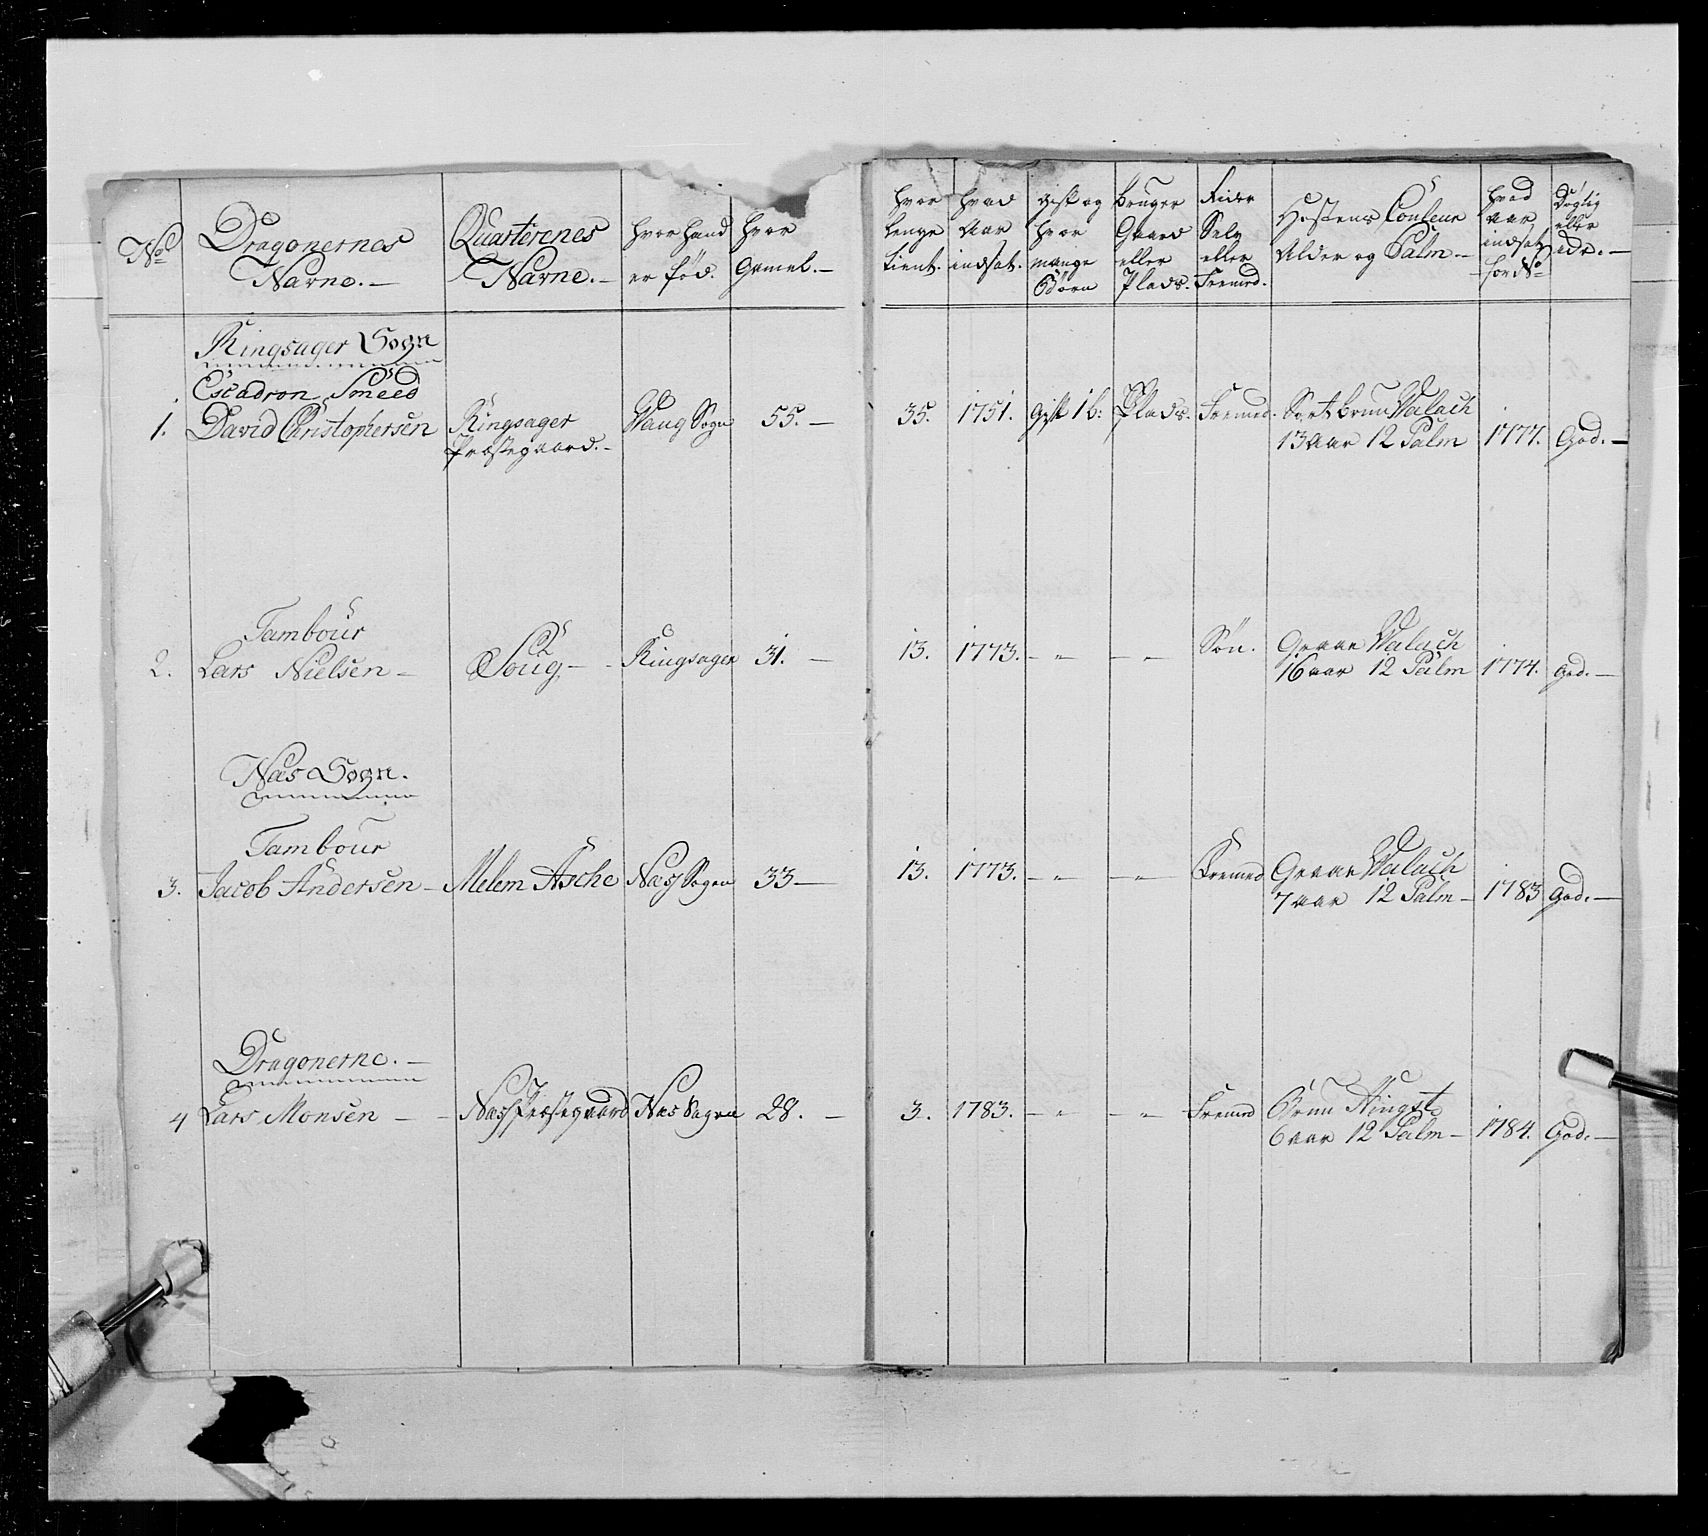 No
Dragonernes
Navne.
Quarterenes
Navne.
hvor hand
er fød.
hvor
Gamel.
hvor
lenge
tient.
hvad
Aar
indsat.
gift og
hvor
mange
Børn
bruger
Gaard
eller
Plads.
Rider
Selv
eller
Fremed.
Hestens Couleur
Alder og Palm.
hvad
Aar
indsat
for No
Dogtig
eller
Ringsager Sogn
Escadron Smeed
1. David Christophersen Ringsager Wang Sogn 55. 35. 1751. Gift 1 b: Plads. Fremed. Sort brun Walach
Præstegaard. 13 aar 12 Palm 1777. God.
Tambour
2. Lars Nielsen Ringsager 31. 13. 1773. Søn. Graae Walach
16 aar 12 Palm 1774. God.
Næs Sogn.
Tambour
3. Jacob Andersen Melem Asche Næs Sogen 33 13. 1773. Fremed Graae Walach
7 aar 12 Palm 1783 God.
Dragonerne.
4 Lars Monsen Næs Præstegaard Næs Sogen 28. 3. 1783. Fremed Brun Hingst
6 aar 12 Palm 1784. God.